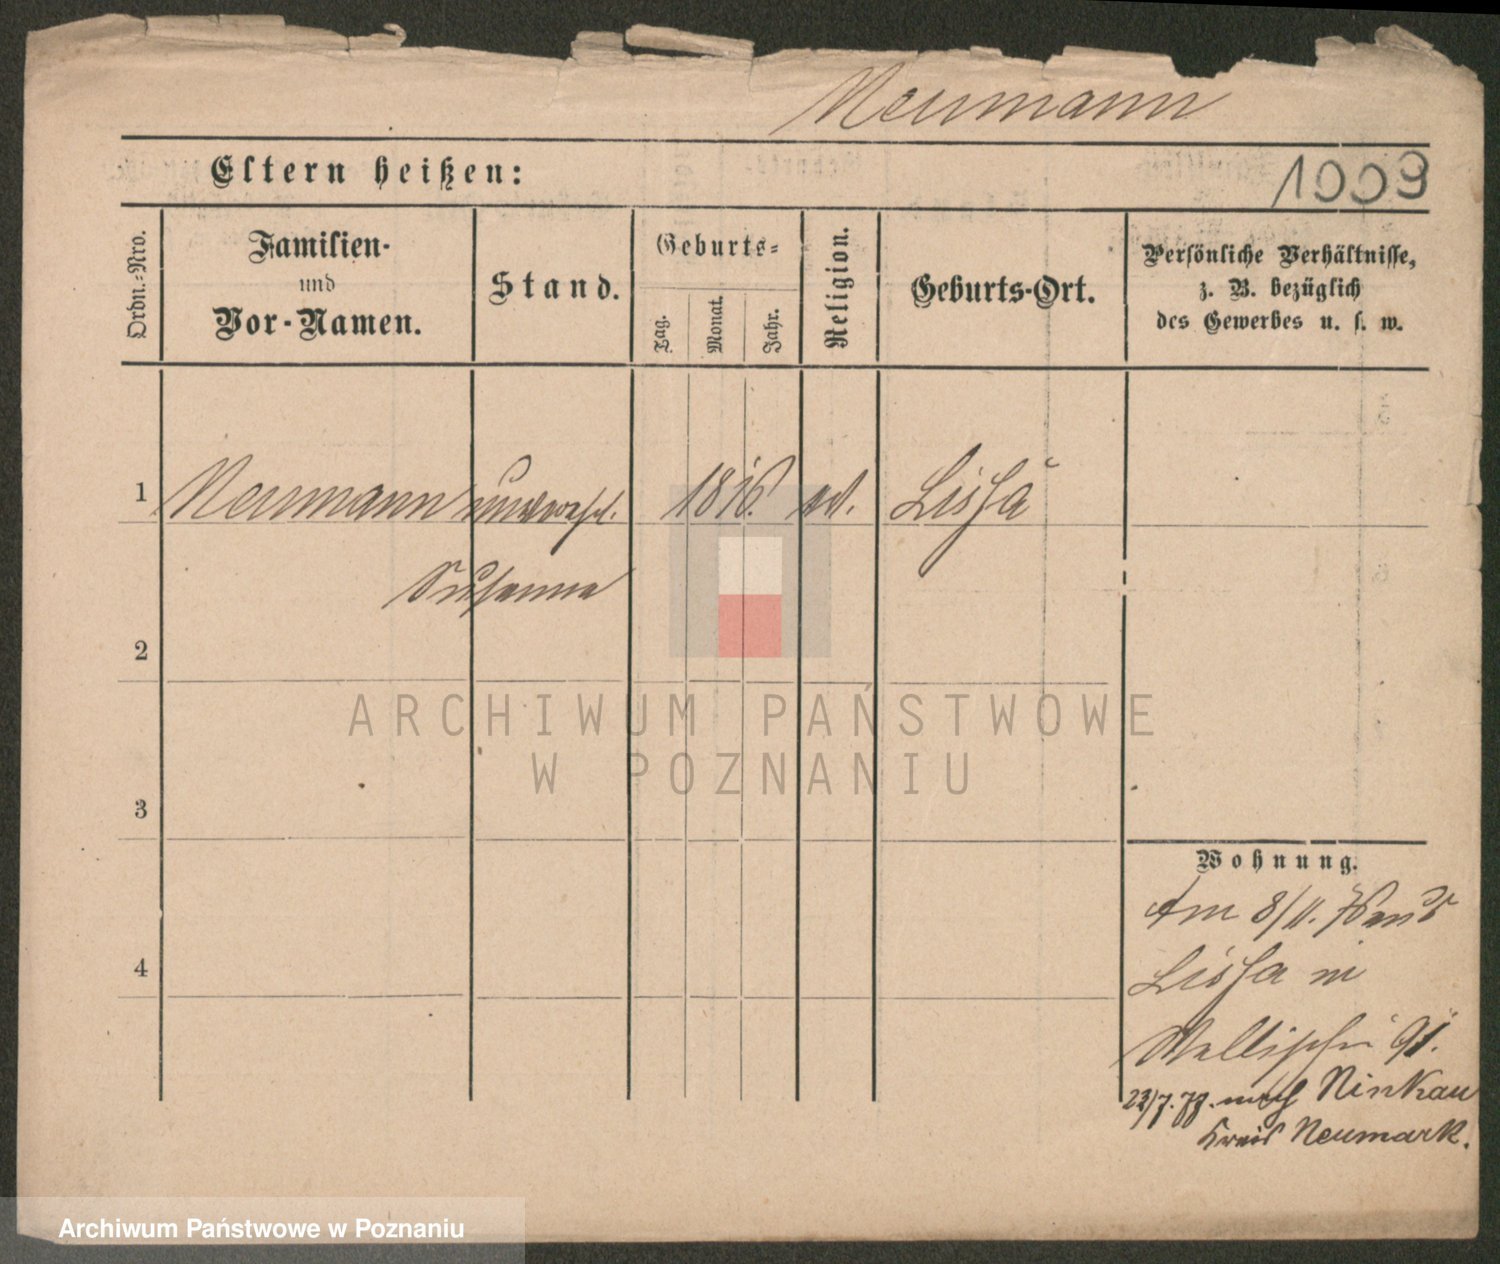 Neumann
1009
Eltern heißen:
Ordn.-Nro.
Familien-
und
Vor-Namen.
Stand.
Geburts-
Tag.
Monat.
Jahr.
Religion.
Geburts-Ort.
Persönliche Verhältnisse,
z. B. bezüglich
des Gewerbes u. s. w.
1 Neumann unverehl. 1816. Lissa
Susanna
2
3
4
Wohnung.
Am 8/11. aus
Lissa in
Wallischei 91.
22/7. nach Ninkau
Kreis Neumark.
ARCHIWUM PAŃSTWOWE
W POZNANIU
Archiwum Państwowe w Poznaniu